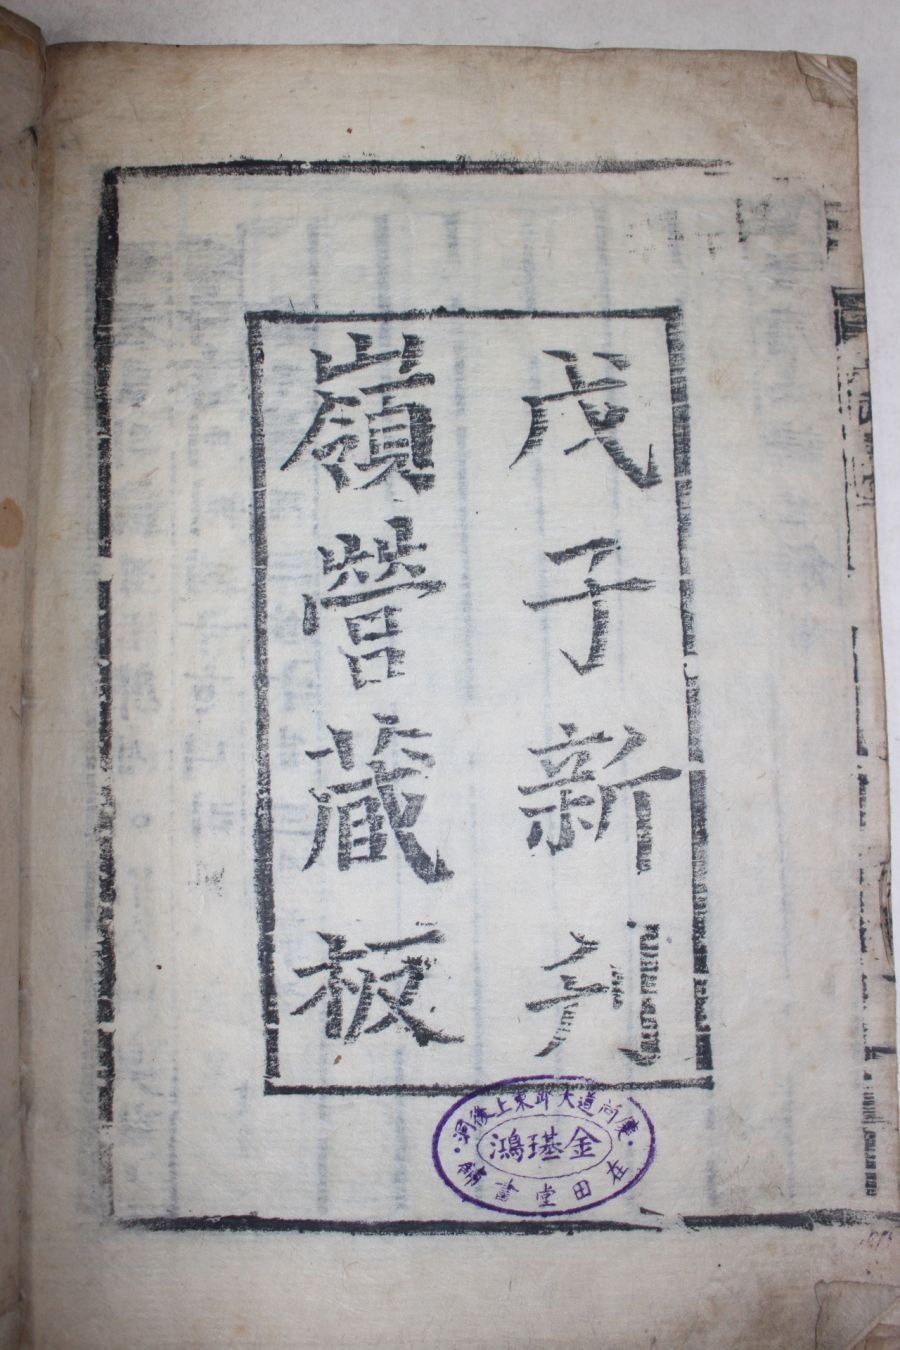 戊子新刋
嶺營藏板
慶尚道大邱東上後洞
金璂鴻
在田堂書舖